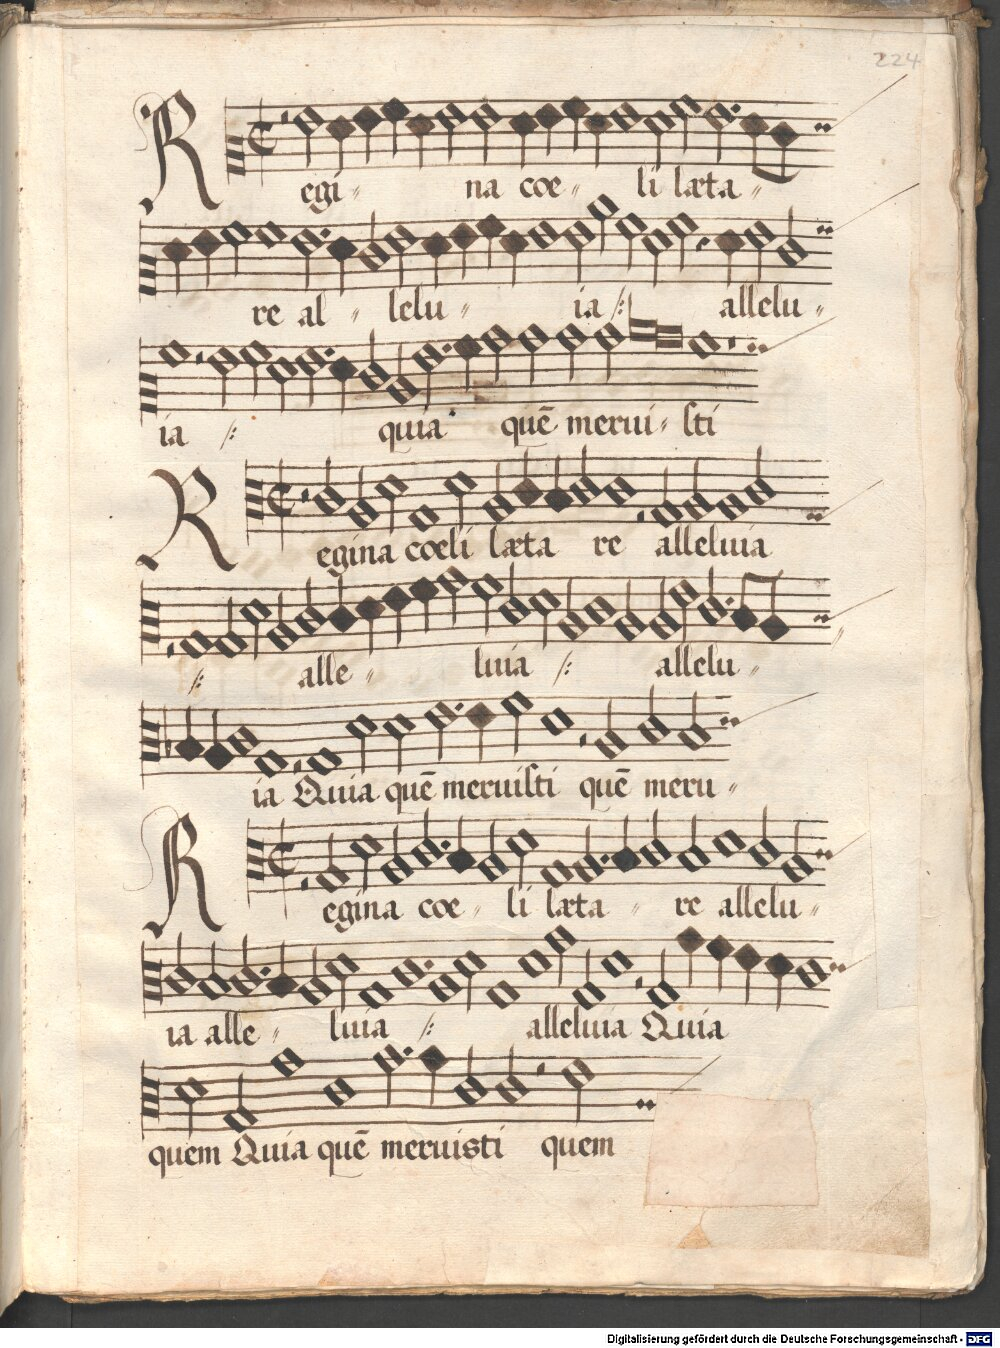 224
Regi- na coe- li læta-
re al- lelu- ia :/: allelu-
ia :/: quia quē merui- sti
Regina coeli læta re alleluia
:/: alle- luia :/: allelu-
ia Quia quē meruisti quē meru-
Regina coe- li læta- re allelu-
ia alle- luia :/: alleluia Quia
quem Quia quē meruisti quem
Digitalisierung gefördert durch die Deutsche Forschungsgemeinschaft - DFG